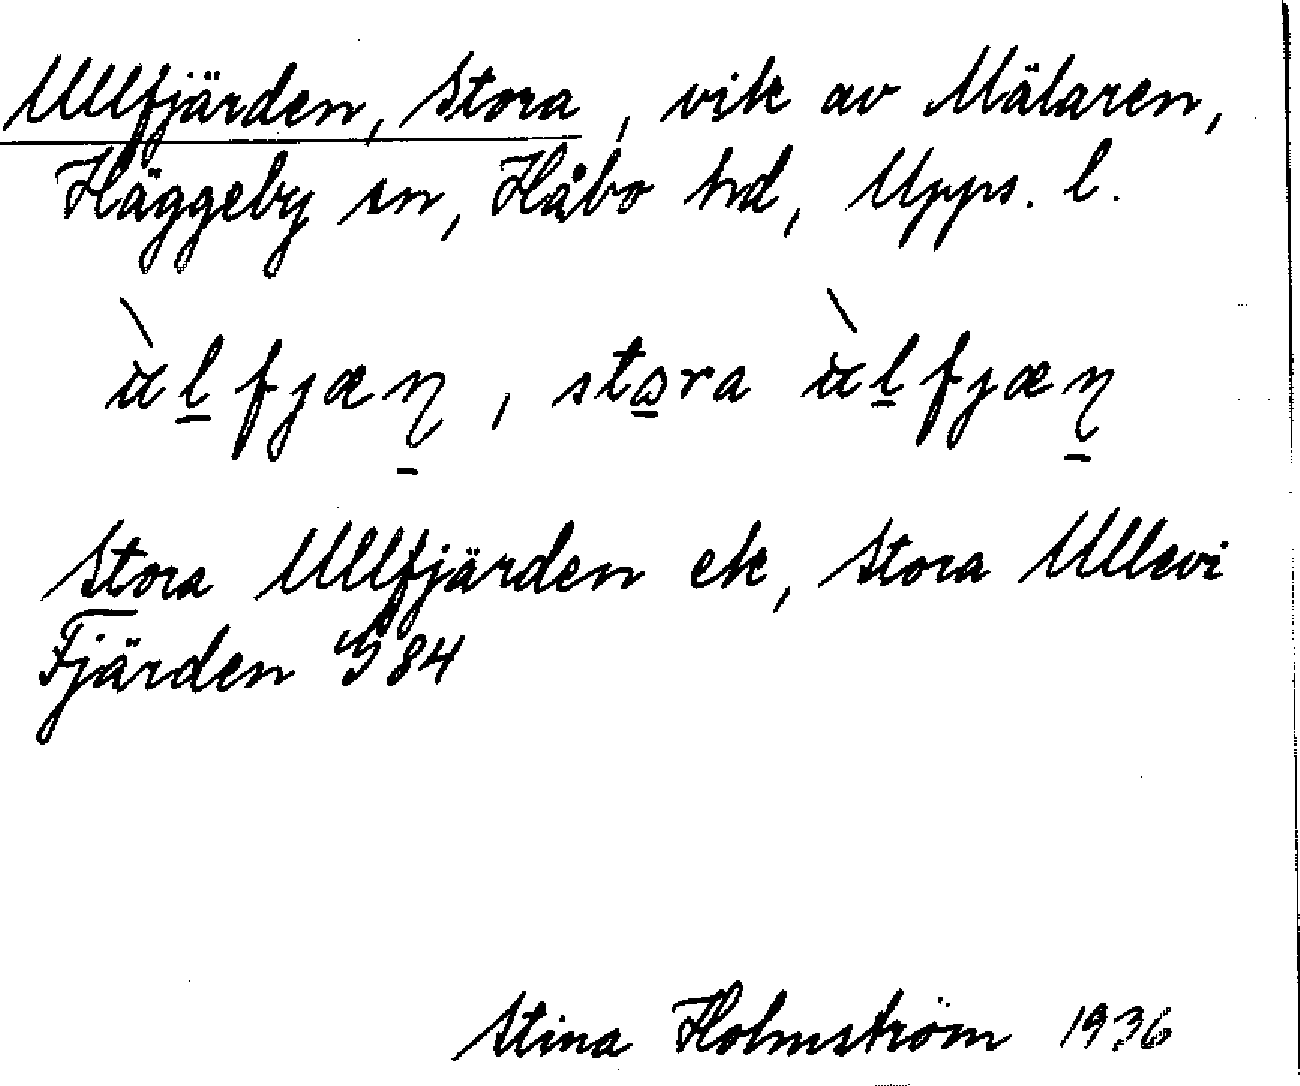 Ullfjärden, Stora, vik av Mälaren,
Häggeby sn, Håbo hd, Upps. l.
stora
Stora Ullfjärden ek, Stora Ullevi
Fjärden G 84
Stina Holmström 1936